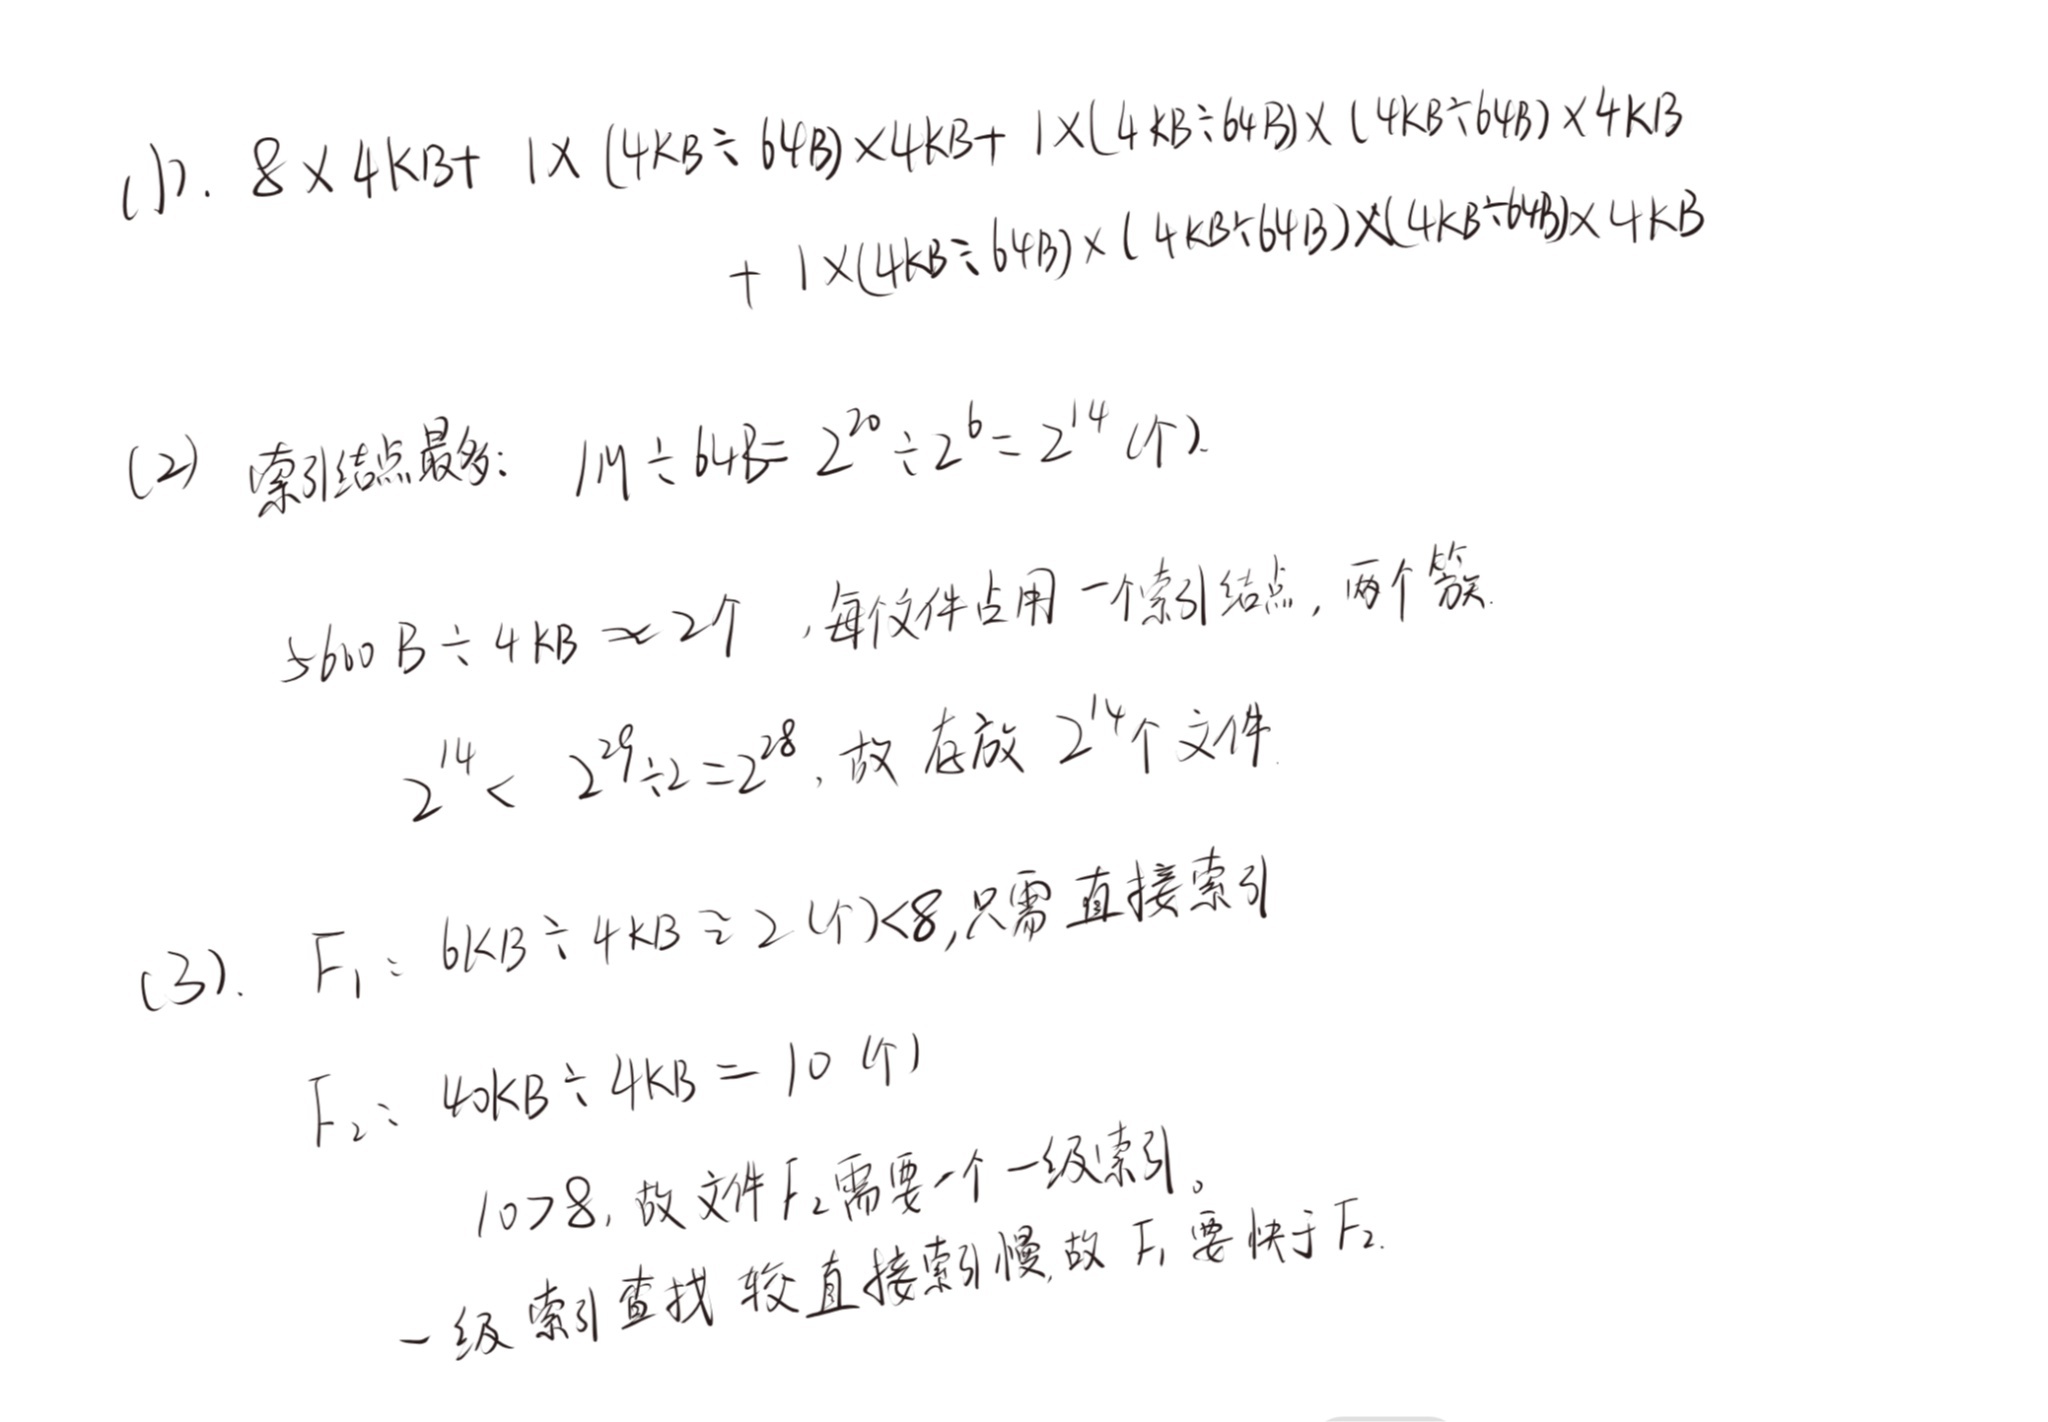 (1). 8×4KB+ 1×(4KB÷64B)×4KB+ 1×(4KB÷64B)×(4KB÷64B)×4KB
+ 1×(4KB÷64B)×(4KB÷64B)×(4KB÷64B)×4KB
(2) 索引结点最多: 1M÷64B=2^20÷2^6=2^14(个).
5600B÷4KB≈2个,每个文件占用一个索引结点,两个簇.
2^14< 2^29÷2=2^28,故存放2^14个文件.
(3). F₁: 6KB÷4KB≈2(个)<8,只需直接索引
F₂: 40KB÷4KB=10(个)
10>8,故文件F₂需要一个一级索引。
一级索引查找较直接索引慢,故F₁要快于F₂.